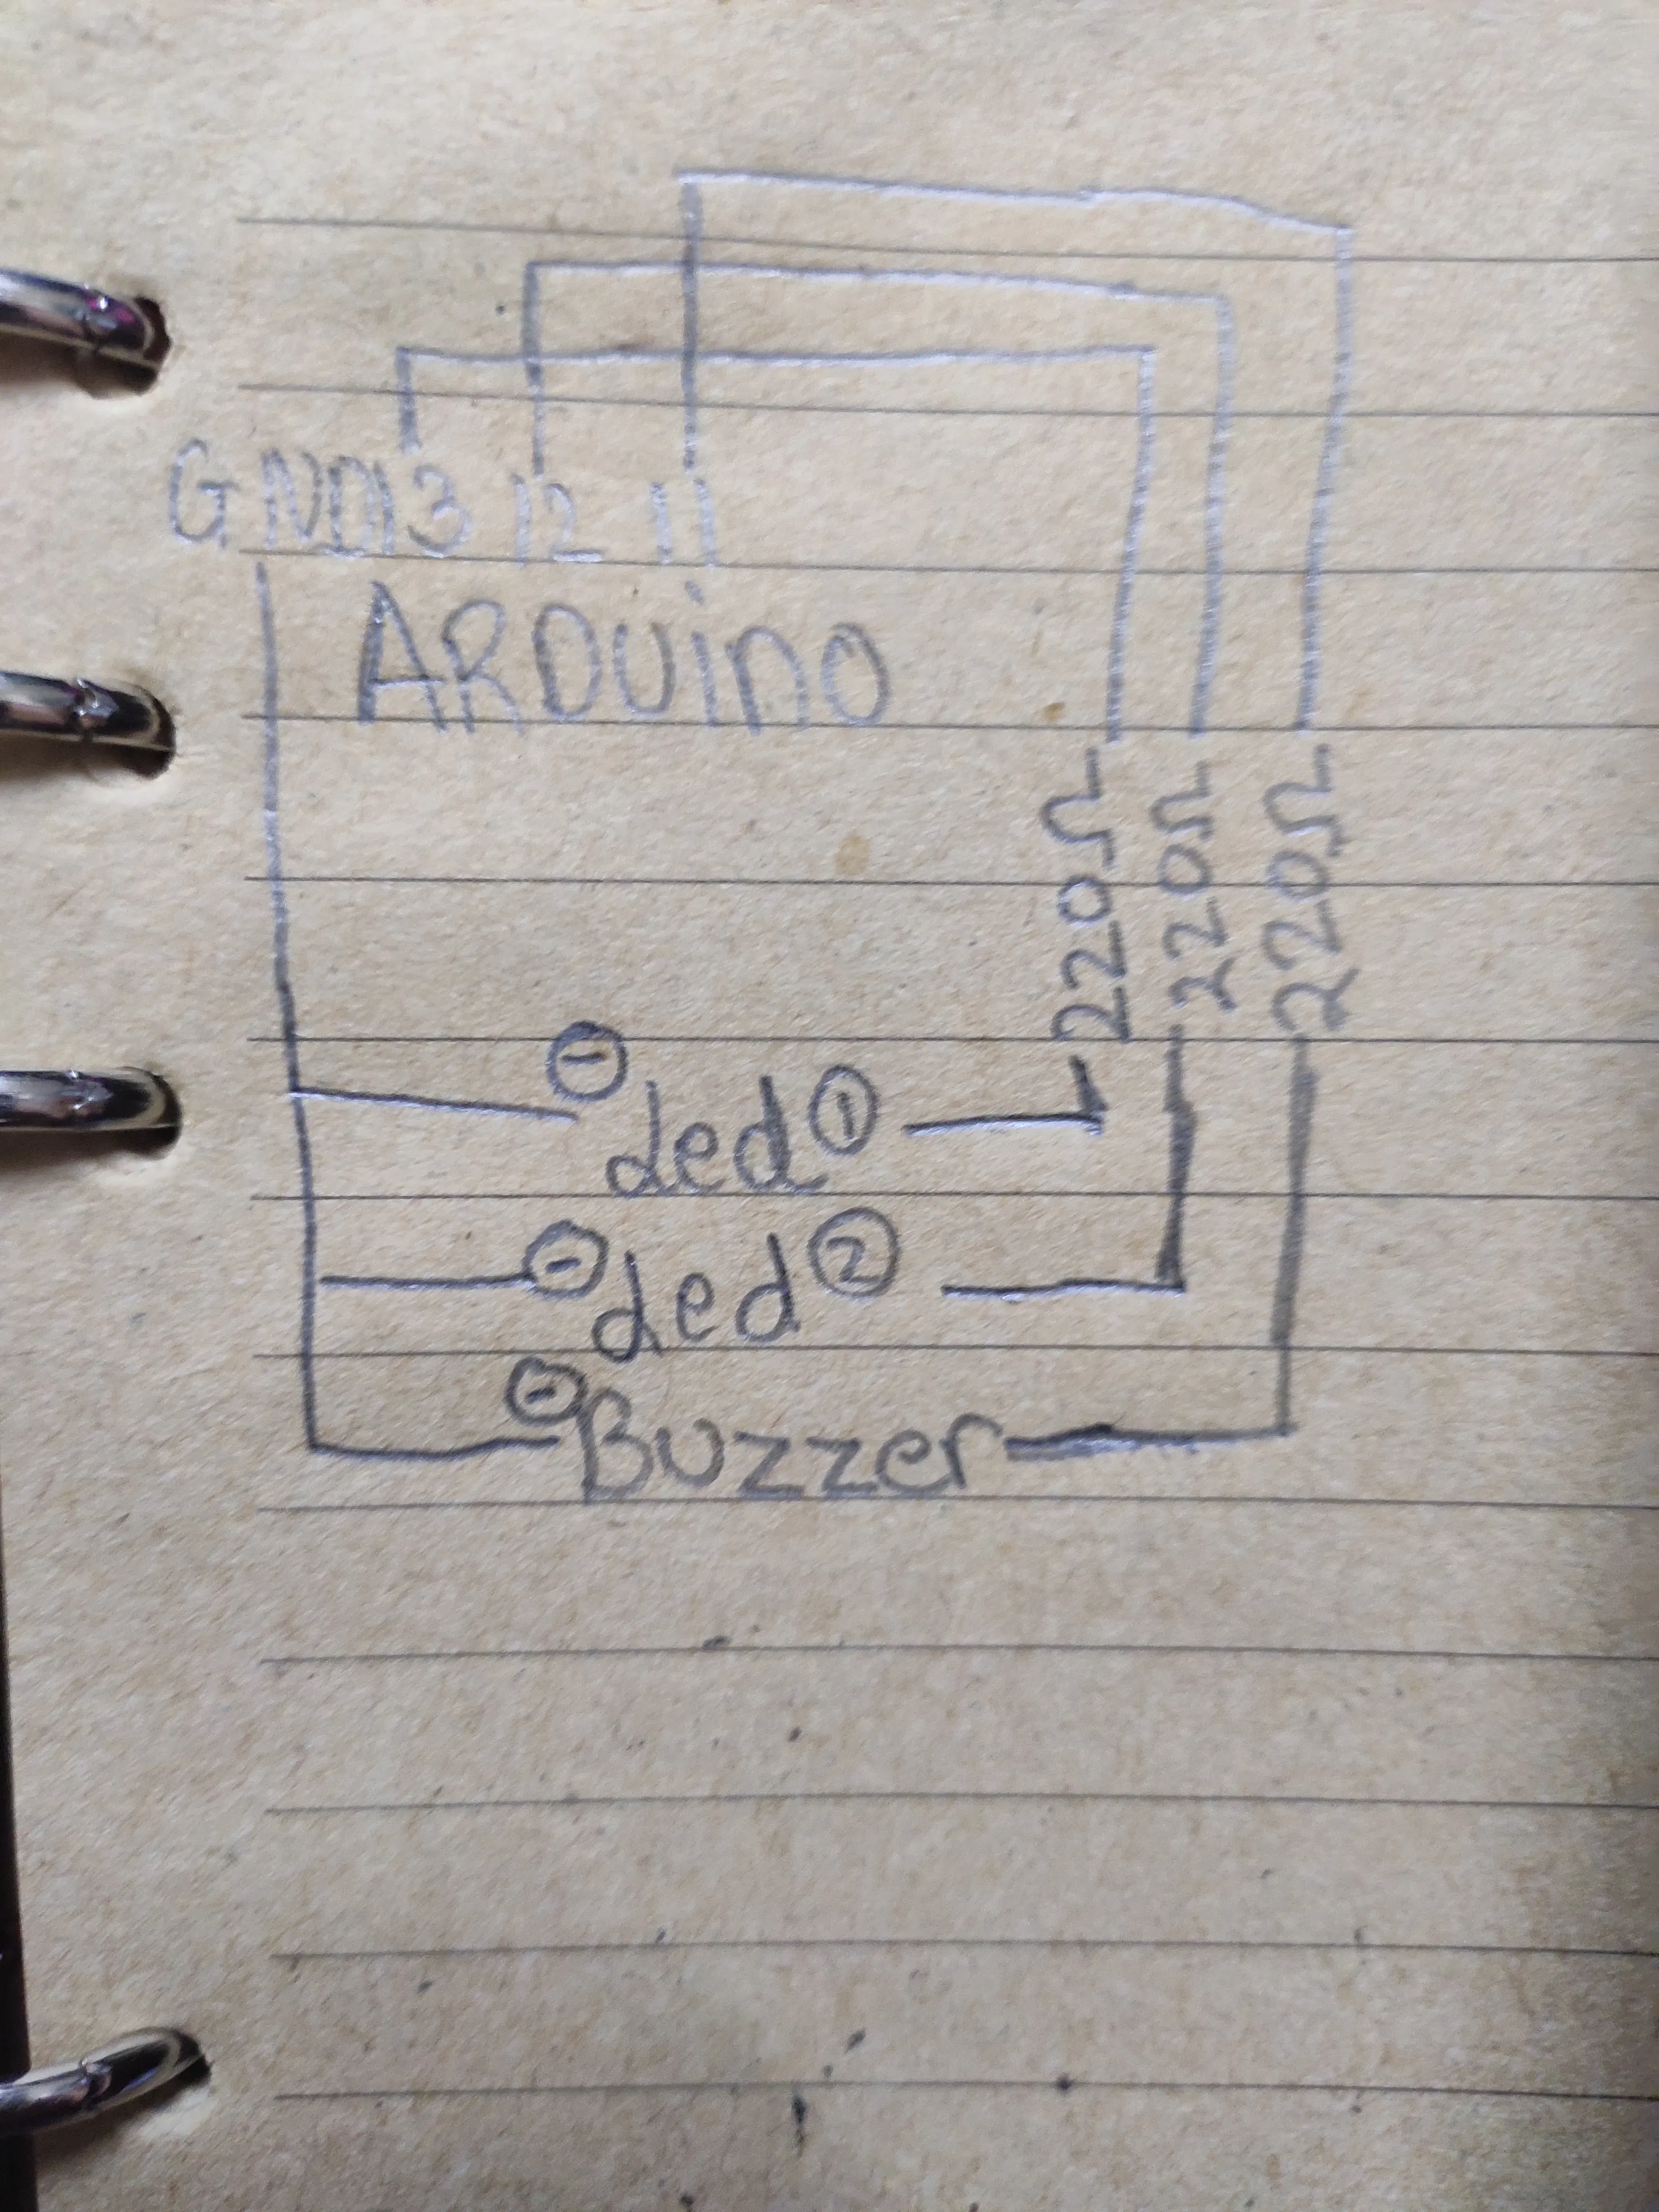 GND 13 12 11
ARDuino
220Ω
220Ω
220Ω
- Led 1
- Led 2
- Buzzer